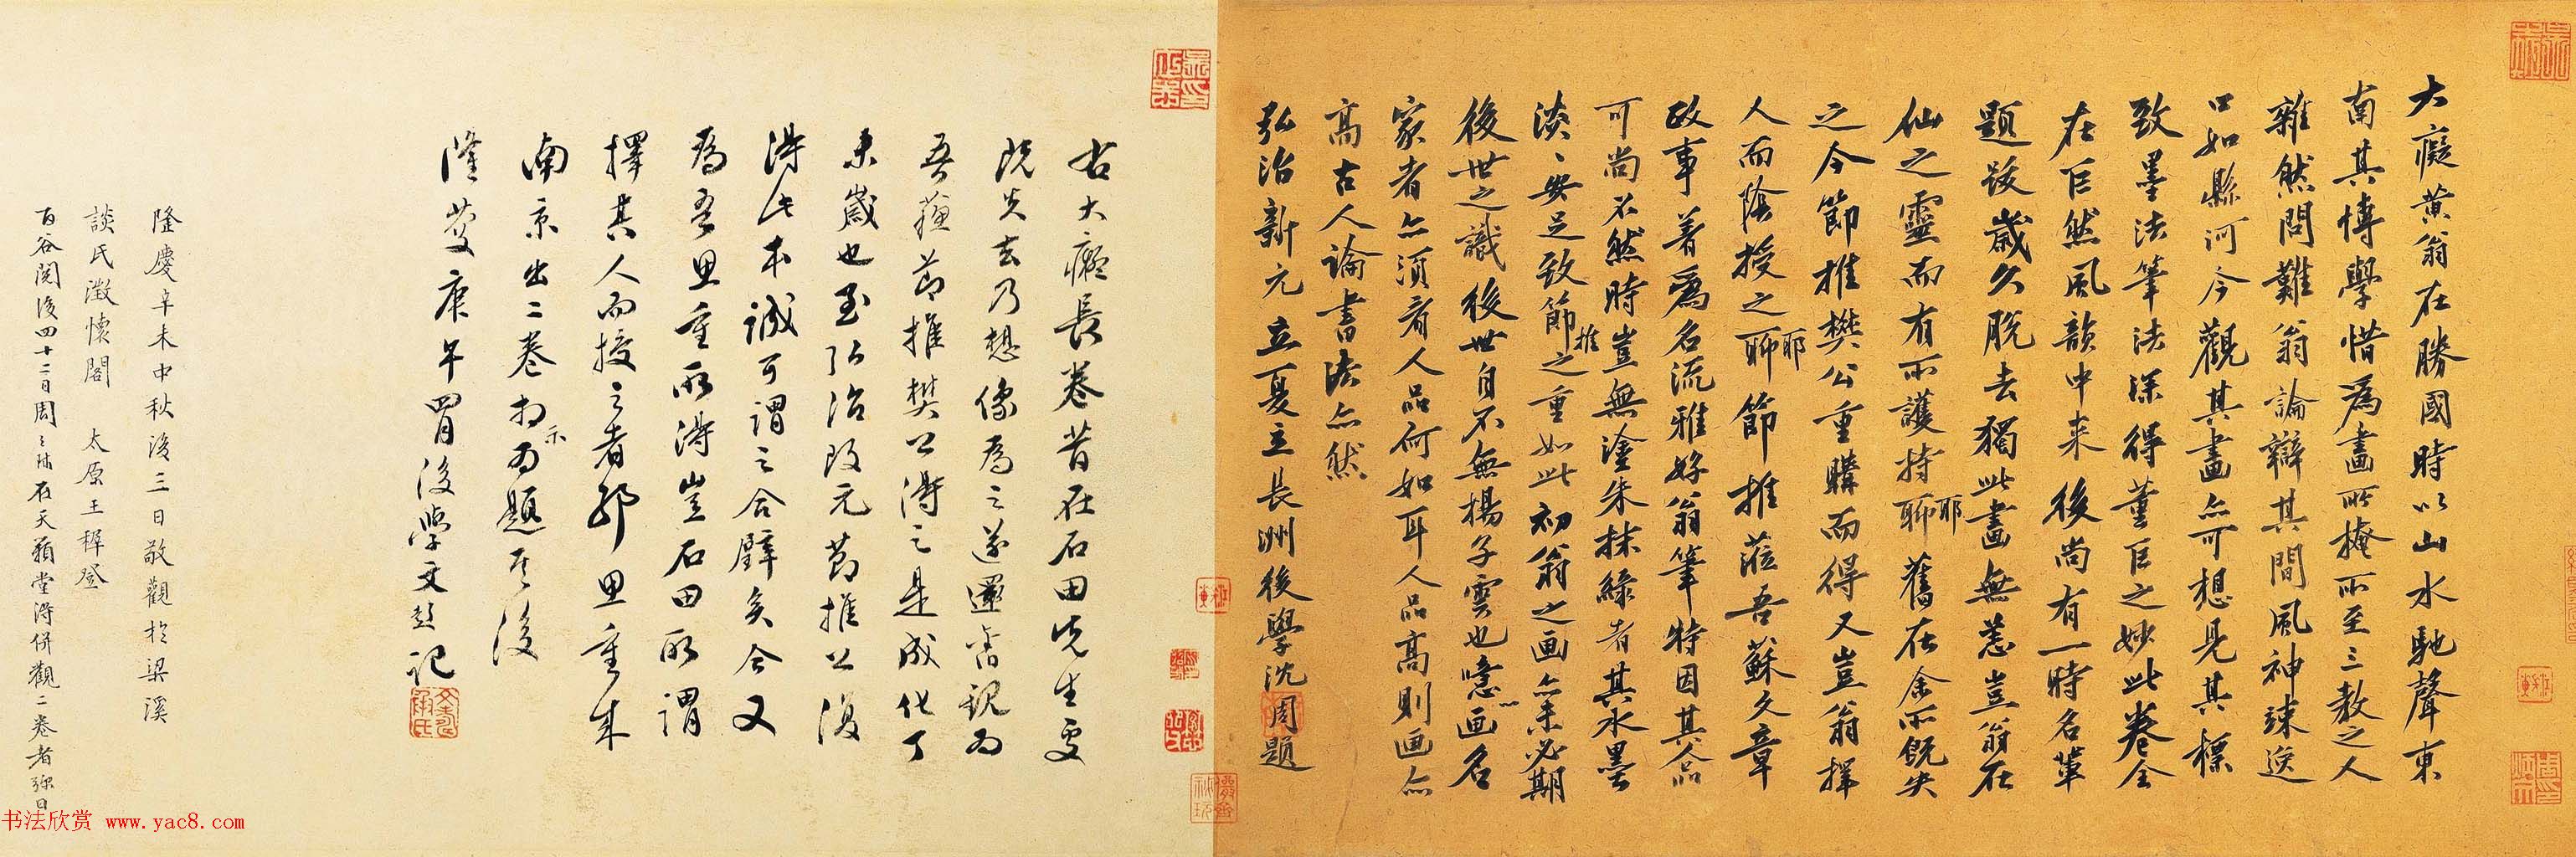 大癡黄翁在勝國時以山水馳聲東
南其博學惜爲畫所掩所至三教之人
雜然問難翁論辯其間風神竦逸
口如懸河今觀其畫亦可想見其標
致墨法筆法深得董巨之妙此卷全
在巨然風韻中来後尚有一時名軰
題跋歲久脱去獨此畫無恙豈翁在
仙之靈而有所護持聊耶舊在余所既失
之今節推樊公重購而得又豈翁擇
人而陰授之聊耶節推蒞吾蘇文章
政事著爲名流雅好翁筆特因其人品
可尚不然時豈無塗朱抹緑者其水墨
淡淡安足致節推之重如此初翁之画亦未必期
後世之識後世自不無揚子雲也噫画名
家者亦須看人品何如耳人品高則画亦
高古人論書法亦然
弘治新元立夏立長洲後學沈周題
右大癡長卷昔在石田先生處
既失去乃想像爲之遂還舊觀为
吾蘇節推樊公得之是成化丁
未歲也至弘治改元節推公復
得此本誠可謂之合璧矣今又
爲吾思重所得豈石田所謂
擇其人而授之者耶思重來
南京出二卷相示为題其後
隆慶庚午四月後學文彭記
隆慶辛未中秋後三日敬觀於梁溪
談氏澂懷閣 太原王穉登
百谷閲後四十二日周天球在天籟堂得併觀二卷者弥日
书法欣赏 www.yac8.com